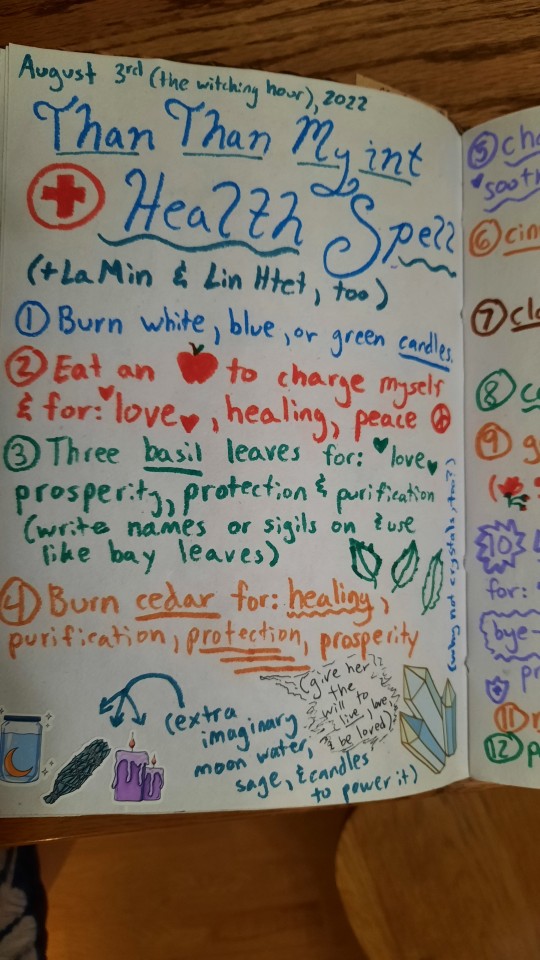 August 3rd (the witching hour), 2022
Than Than Myint
Health Spell
(+ La Min & Lin Htet, too)
① Burn white, blue, or green candles.
② Eat an to charge myself
& for: love, healing, peace
③ Three basil leaves for: love,
prosperity, protection & purification
(write names or sigils on & use
like bay leaves)
④ Burn cedar for: healing,
purification, protection, prosperity
(why not crystals, too?)
(give her
the
will to
live, love,
& be loved)
(extra
imaginary
moon water,
sage, & candles
to power it)
⑤
⑥ cin
⑦
⑧
⑨ g
10
for:
bye-
⑪
⑫ p